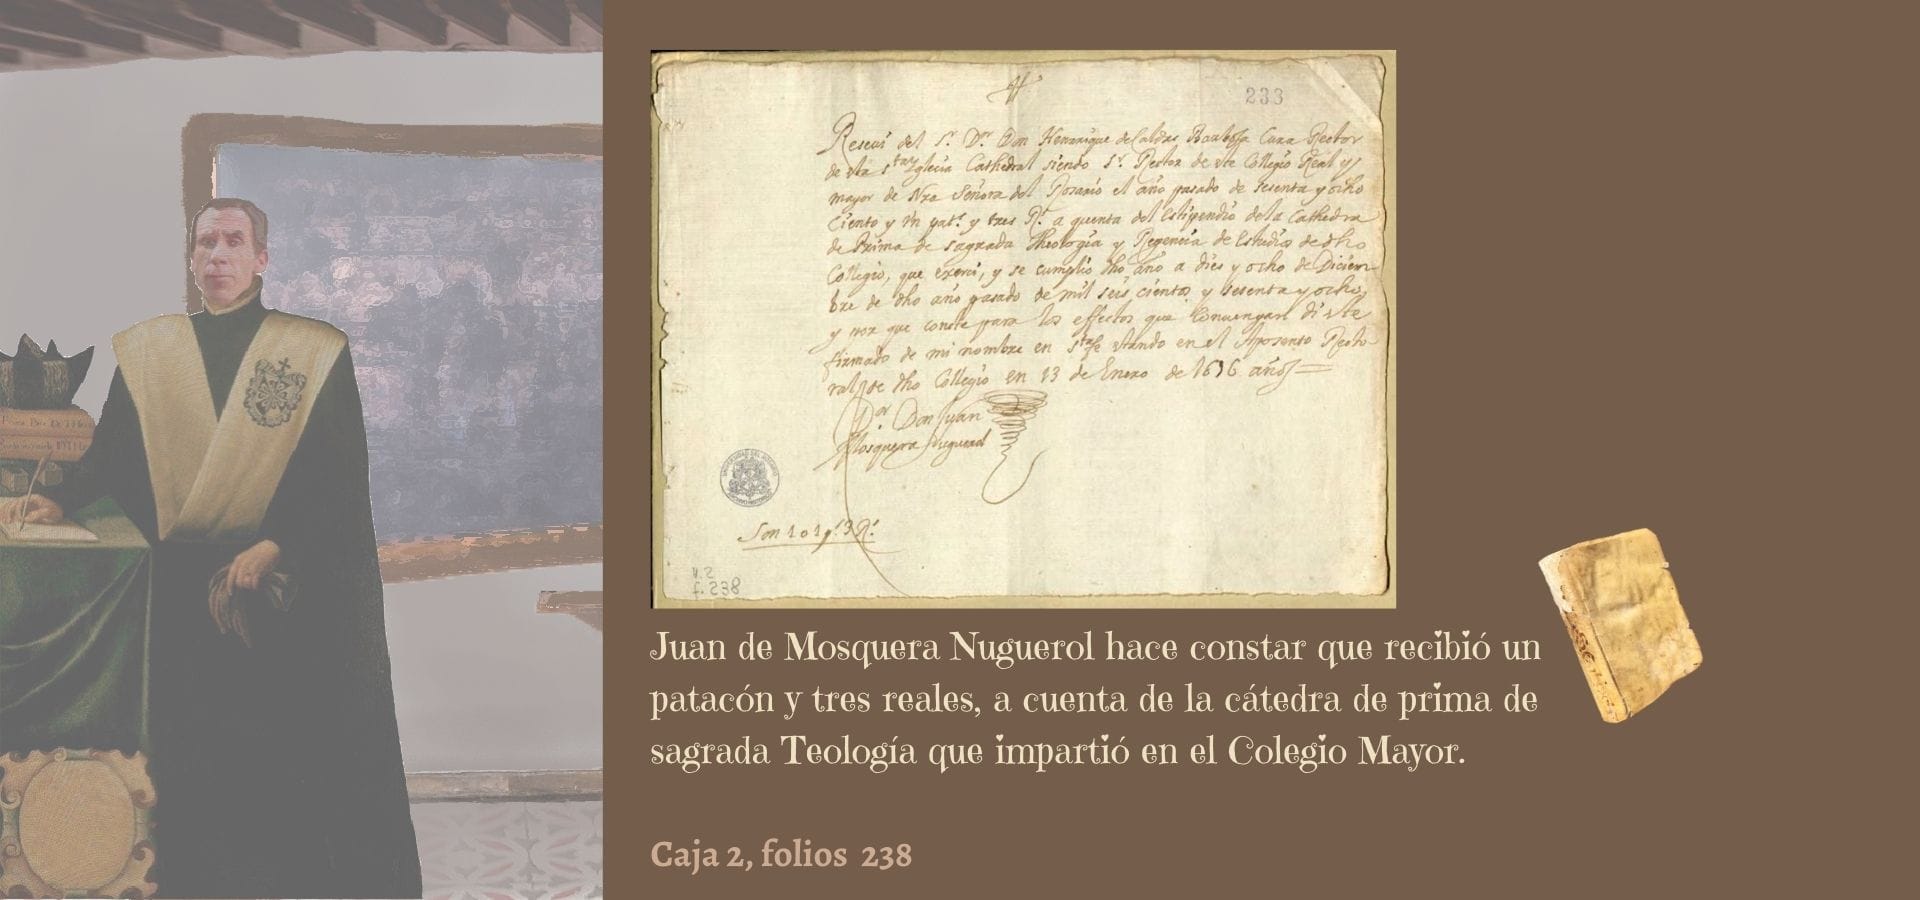 233
Reseui del S.r D.r Don Henrrique de Caldas Barbosa Cura Rector
de esta s.ta Yglecia Cathedral siendo S.r Rector de este Collegio Real y
mayor de Nra Señora del Rosario el año pasado de sesenta y ocho
Ciento y Vn pat.s y tres R.s a quenta del Estipendio de la Cathedra
de Prima de Sagrada Theologia y Regencia de Estudios de dho
Collegio, que exerci, y se cumplio dho año a dies y ocho de Diciem
bre de dho año pasado de mil seis cientos y sesenta y ocho,
y por que conste para los effectos que Conuengan di este
firmado de mi nombre en S.ta fe estando en el Aposento Recto
ral de dho Collegio en 13 de Enero de años
D.or Don Juan
Mosquera Nuguerol
Son 101 p.s 3 R.s
V. 2
f. 238
Juan de Mosquera Nuguerol hace constar que recibió un
patacón y tres reales, a cuenta de la cátedra de prima de
sagrada Teología que impartió en el Colegio Mayor.
Caja 2, folios 238